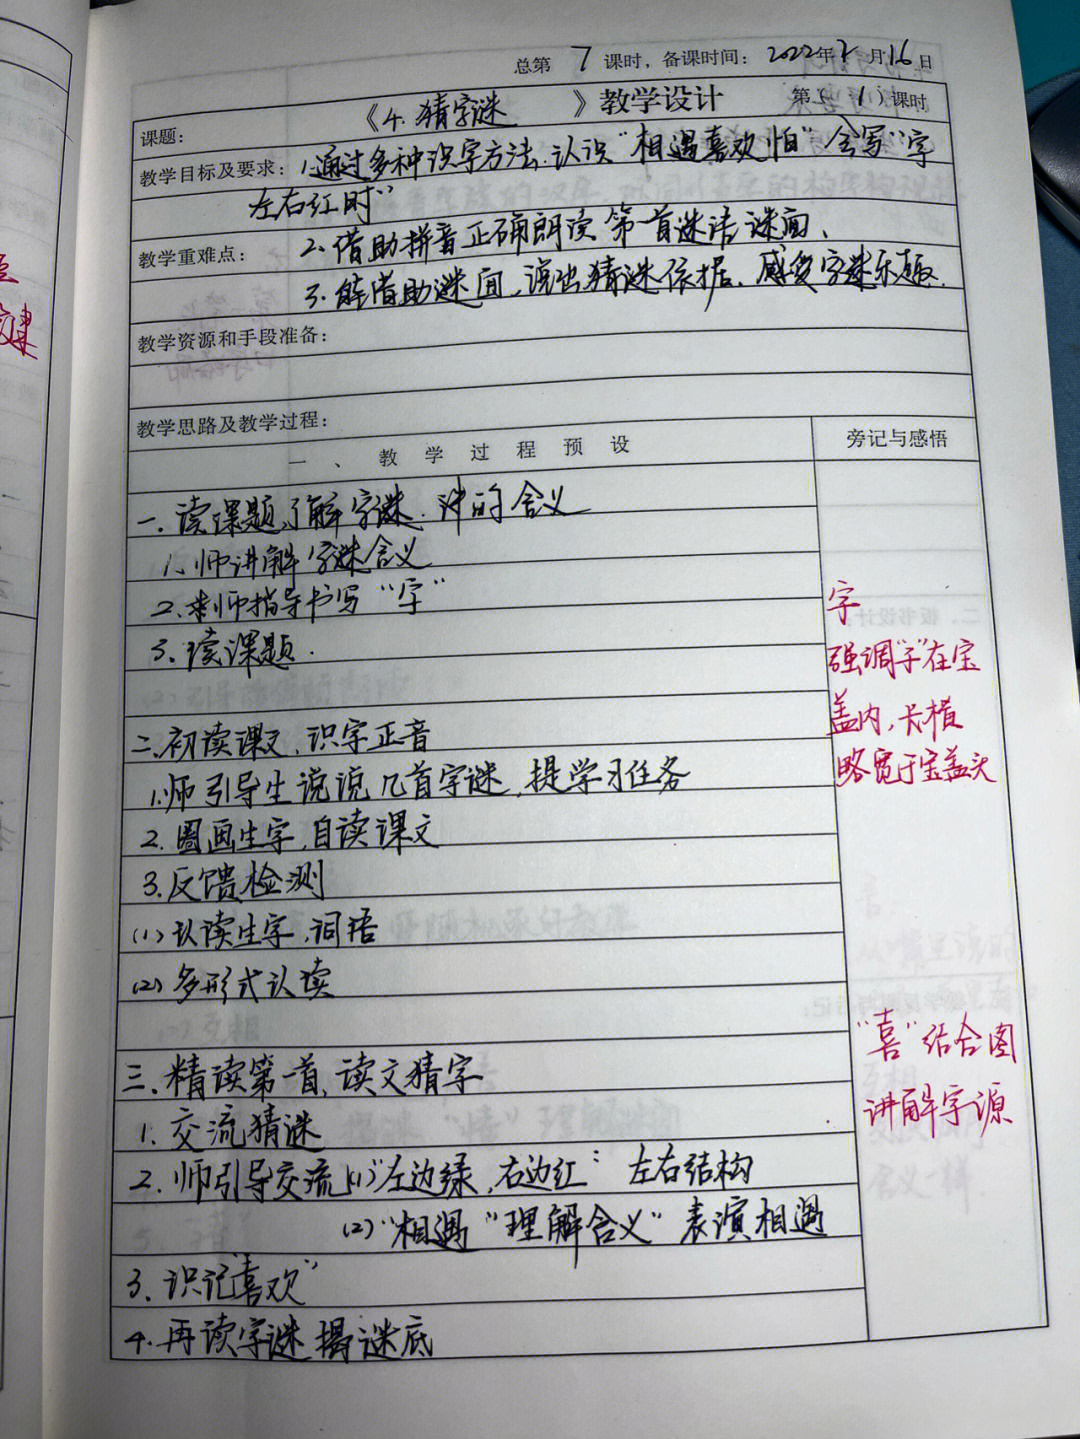 总第 7 课时，备课时间：2022年2月16日
《4.猜字谜》教学设计 第（1）课时
课题：
教学目标及要求：1.通过多种识字方法.认识"相遇喜欢怕"会写"字
左右红时"
2.借助拼音正确朗读第一首谜语谜面.
教学重难点：
3.能借助谜面,说出猜谜依据.感受字谜乐趣.
教学资源和手段准备：
教学思路及教学过程：
一、教学过程预设
旁记与感悟
一.读课题,了解字谜.谜的含义
1.师讲解字谜含义
2.教师指导书写"字"
3.读课题.
字
强调"子"在宝
盖内,长横
略宽于宝盖头
二.初读课文,识字正音
1.师引导生说说几首字谜,提学习任务
2.圈画生字,自读课文
3.反馈检测
(1)认读生字,词语
(2)多形式认读
三.精读第一首,读文猜字
"喜"结合图
讲解字源
1.交流猜谜
2.师引导交流(1)"左边绿,右边红":左右结构
(2)"相遇"理解含义"表演相遇
3.识记"喜欢"
4.再读字谜揭谜底